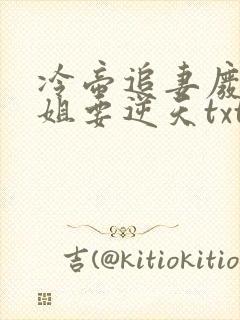 冷帝追妻廢
姐要逆天txt
吉(@kitiokitio